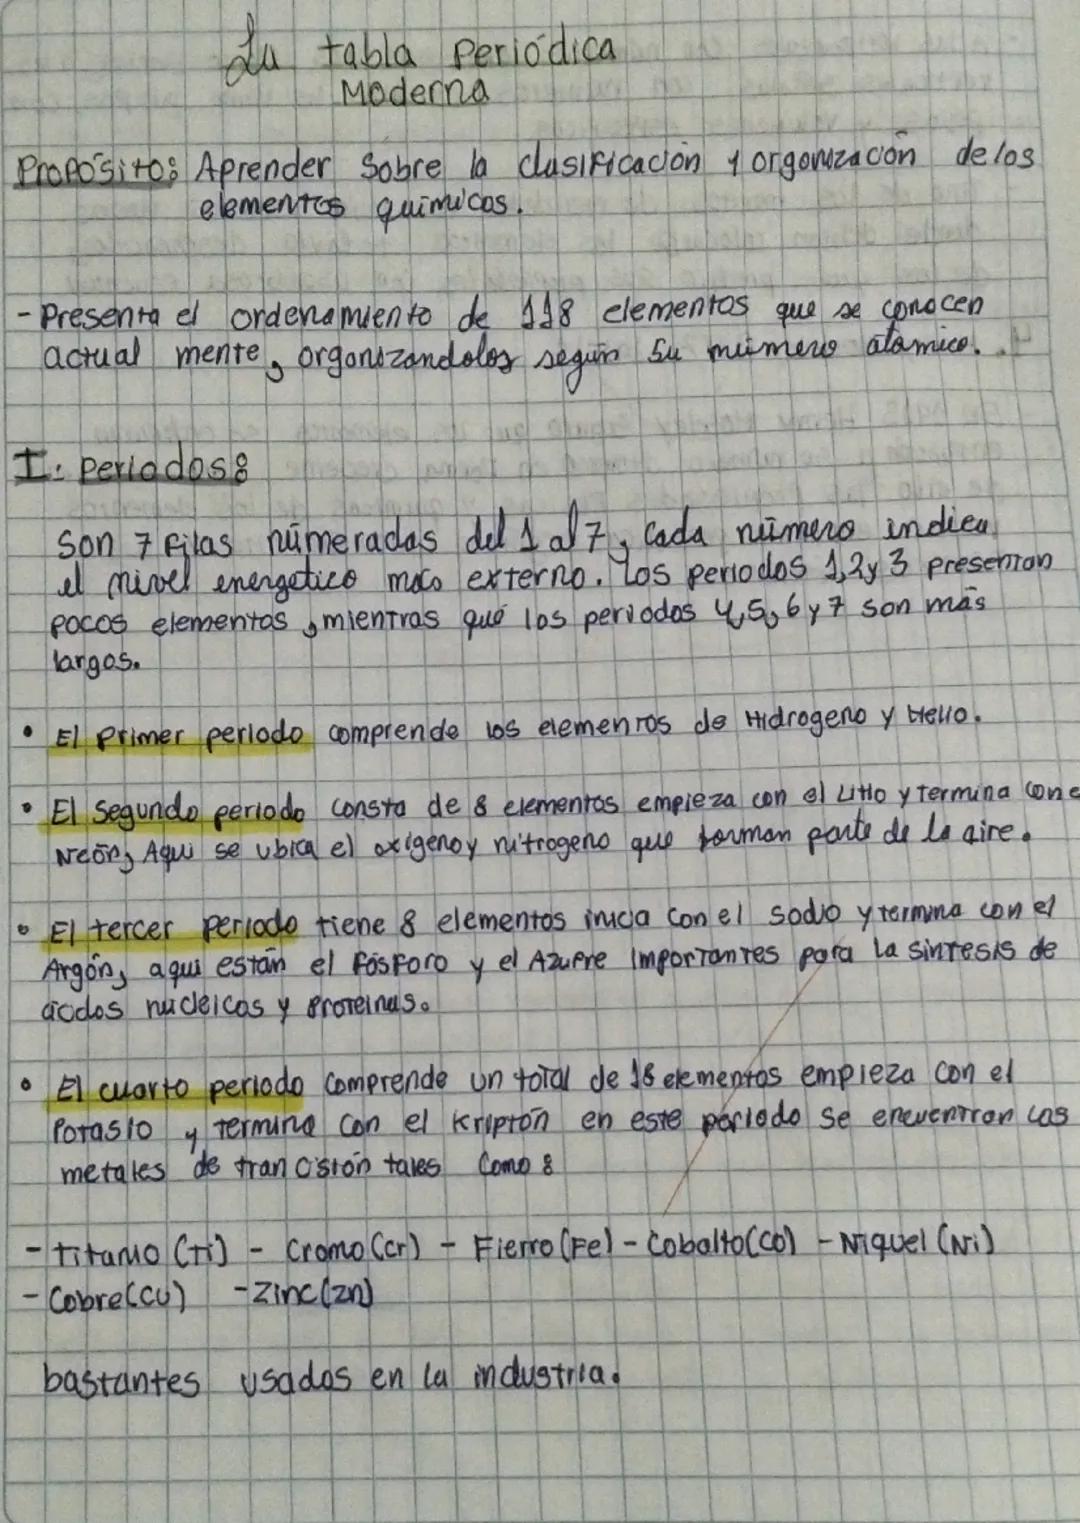 La tabla periódica
Moderna
Propósito: Aprender sobre la clasificación y organización de los
elementos químicos.
- Presenta el ordenamiento de 118 elementos que se conocen
actual mente, organizandolos según su número atómico.
I: periodos:
Son 7 filas númeradas del 1 al 7, cada número indica
el nivel energetico mas externo. Los periodos 1,2y 3 presentan
pocos elementos, mientras qué los periodos 4,5,6 y 7 son más
largos.
• El primer periodo comprende los elementos de Hidrogeno y Helio.
• El Segundo periodo consta de 8 elementos empieza con el Litio y termina con e
Neón, Aqui se ubica el oxígeno y nitrogeno que forman parte de la aire.
• El tercer periodo tiene 8 elementos inicia con el sodio y termina con el
Argón, aqui están el fósforo y el Azufre importantes para la sintesis de
ácidos nucleicos y proteinas.
• El cuarto periodo comprende un total de 18 elementos empieza con el
Potasio y termina con el Kriptón en este periodo se encuentran los
metales de trancisión tales como:
- Titanio (Ti) - Cromo (Cr) - Fierro (Fe) - Cobalto (Co) - Niquel (Ni)
- Cobre (Cu) - Zinc (Zn)
bastantes usados en la industria.